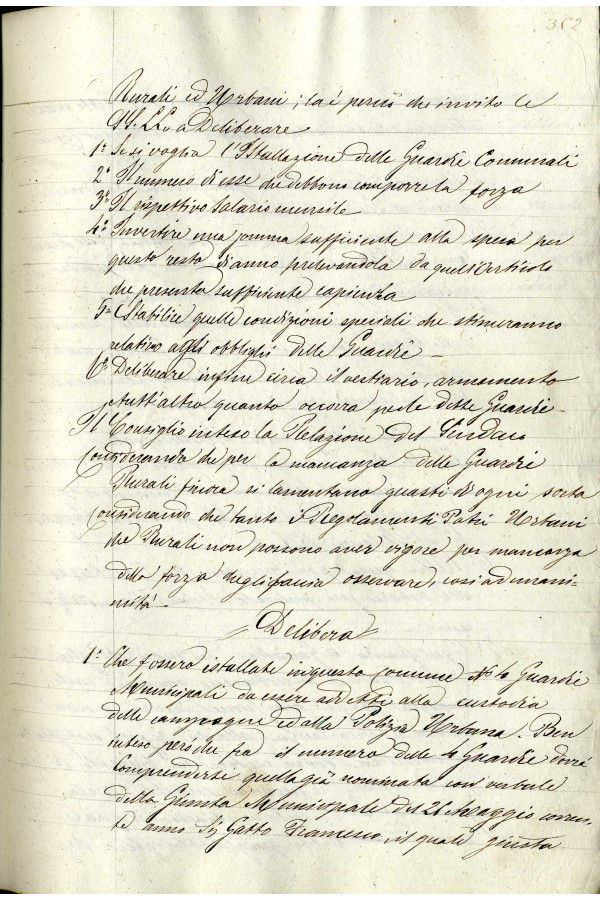 352
Rurali ed Urbani; ed è perciò che invito le
SS. LL. a Deliberare
1° Se si voglia l'Istallazione delle Guardie Comunali
2° Il numero di esse che debbono comporre la forza
3° Il rispettivo salario mensile
4° Invertire una somma sufficiente alla spesa per
questo resto d'anno prelevandola da quell'articolo
che presenta sufficiente capienza
5° Stabilire quelle condizioni speciali che stimeranno
relative agli obblighi delle Guardie —
6° Deliberare infine circa il vestiario, armamento
e tutt'altro quanto occorra per le dette Guardie —
Il Consiglio inteso la Relazione del Sindaco
Considerando che per la mancanza delle Guardie
Rurali finora si lamentano guasti di ogni sorta
Considerando che tanto i Regolamenti Urbani
che Rurali non possono aver vigore per mancanza
della forza che gli faccia osservare, così ad unani-
mità —
Delibera
1° Che fossero istallate in questo Comune N° 4 Guardie
Municipali da essere addetti alla custodia
delle campagne ed alla Polizia Urbana. Ben
inteso però che fra il numero delle 4 Guardie dovrà
comprendersi quella già nominata con verbale
della Giunta Municipale del 21 Maggio corren-
te anno Sig Gatto Francesco, il quale giusta